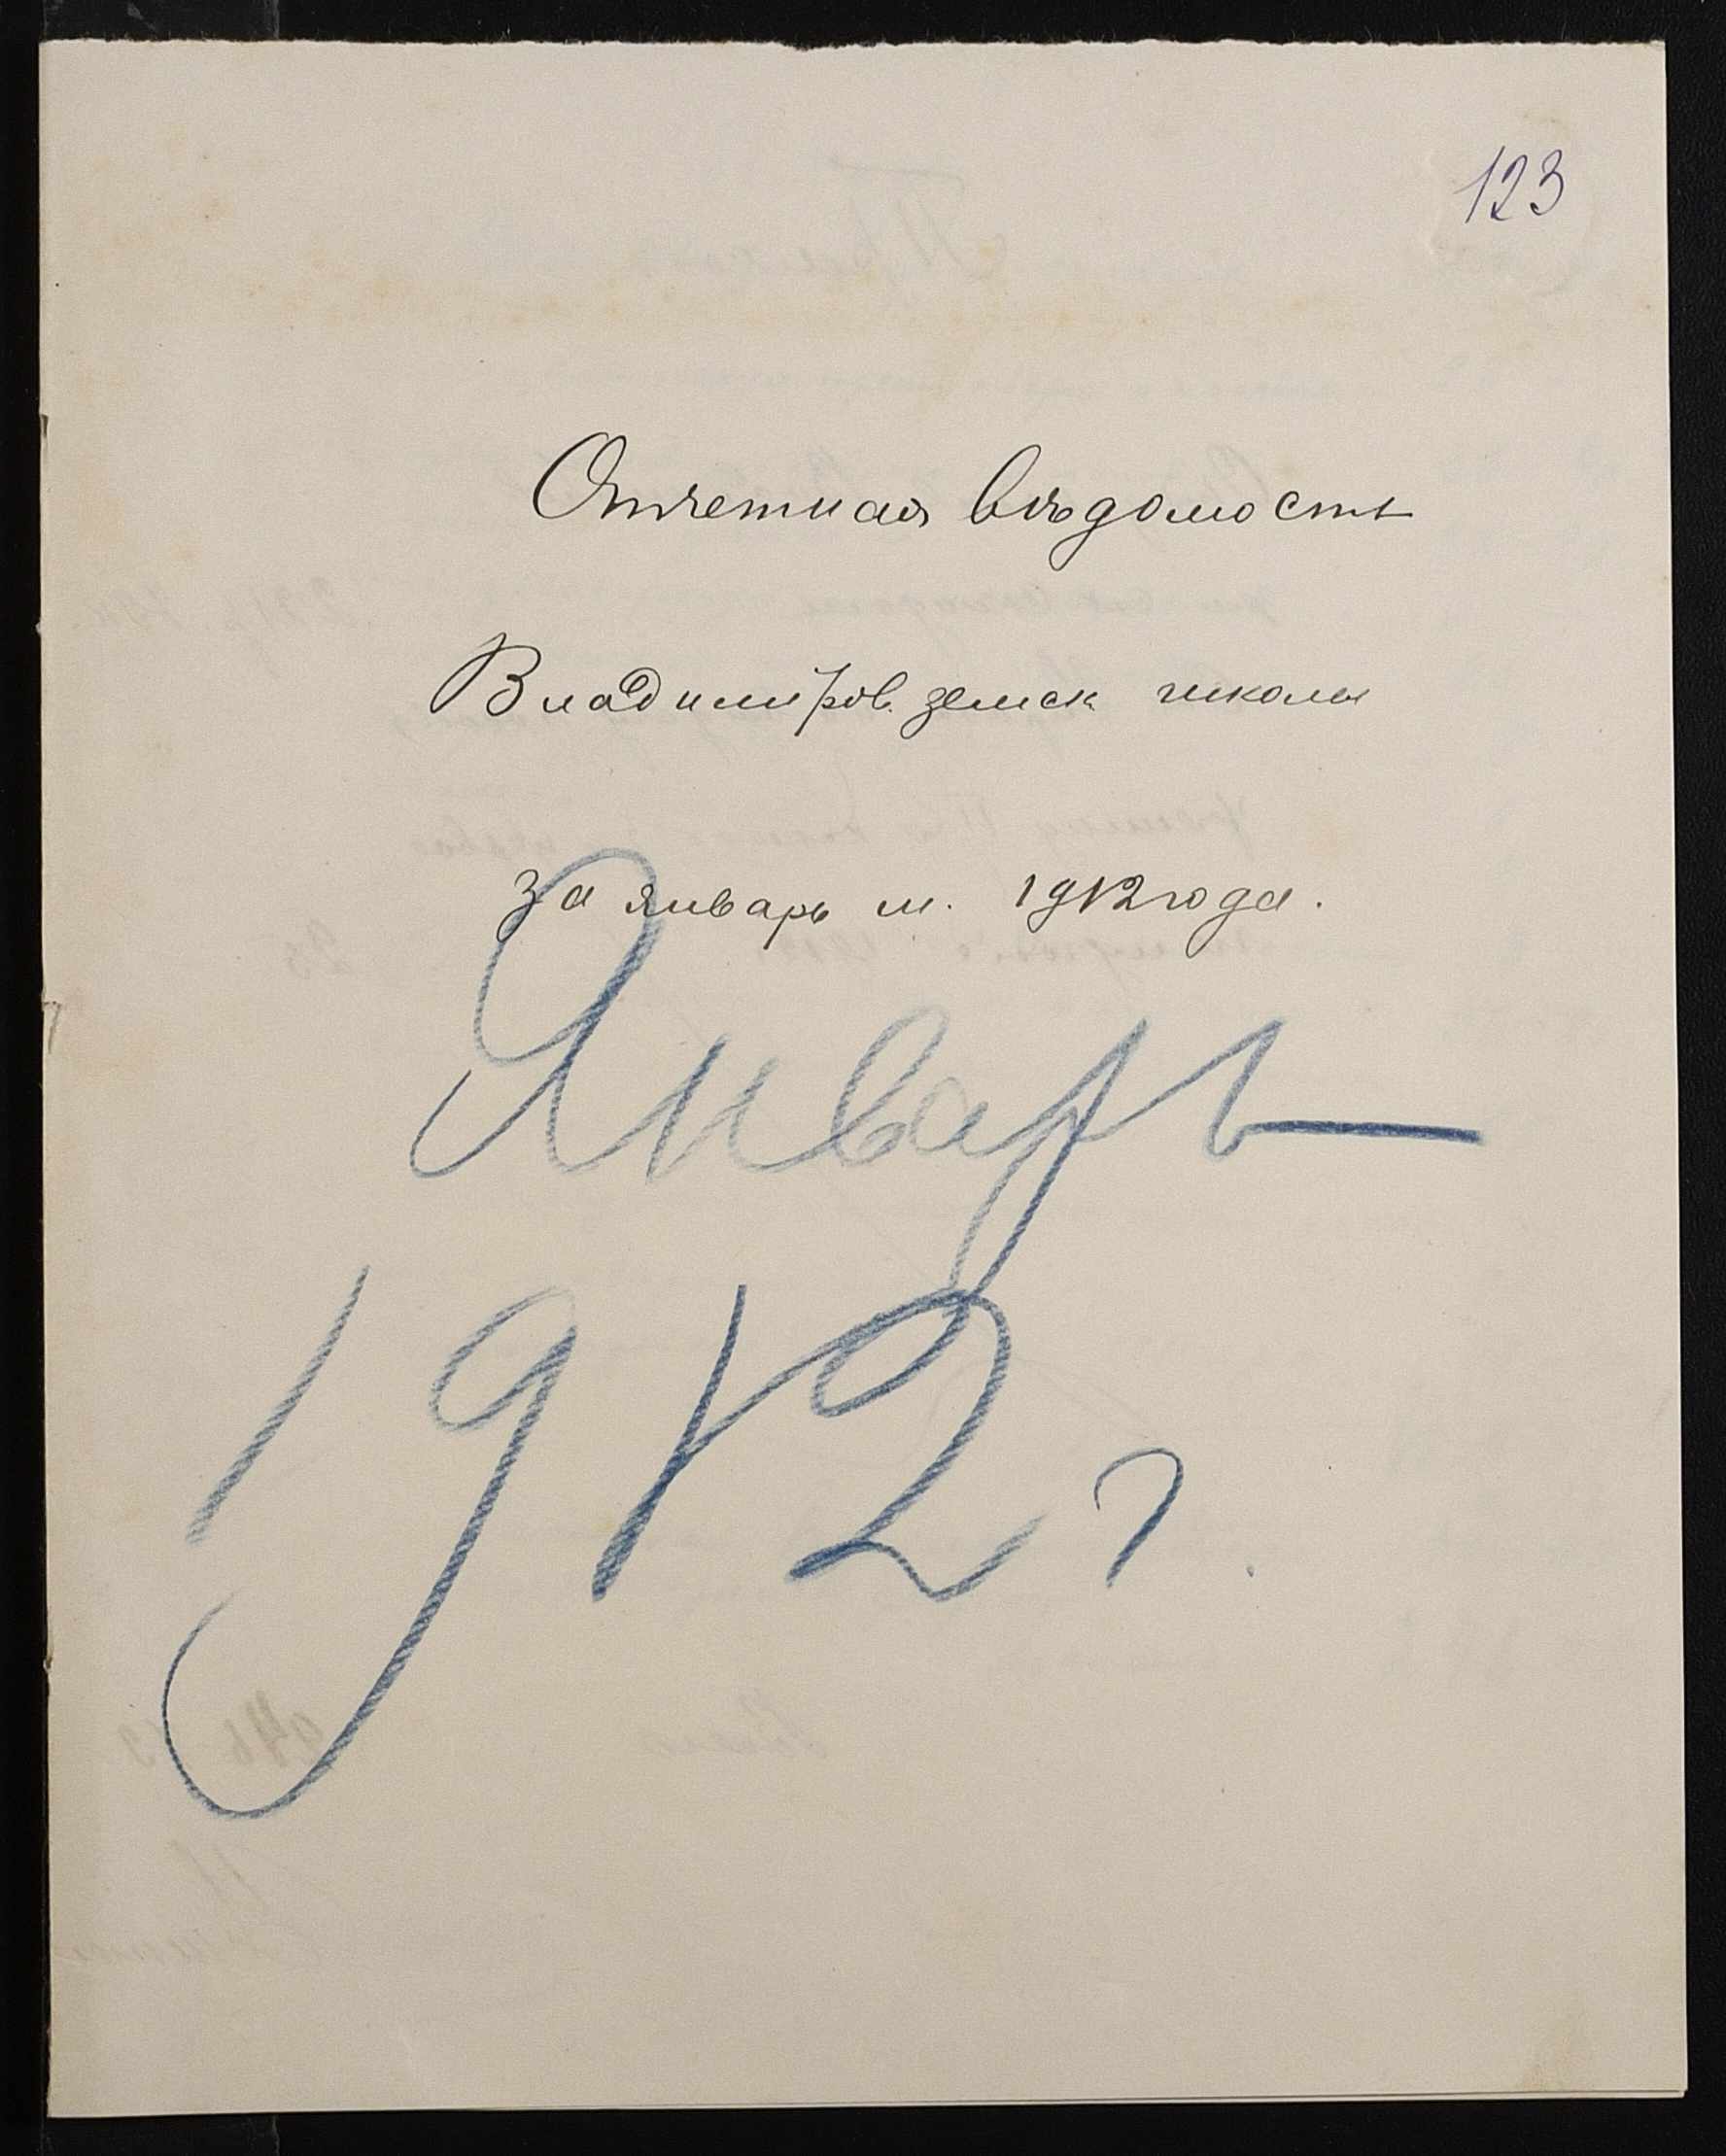 123
Отчетная вѣдомость
Владимiров. земск. школы
за январь м. 1912 года.
Январь
1912 г.